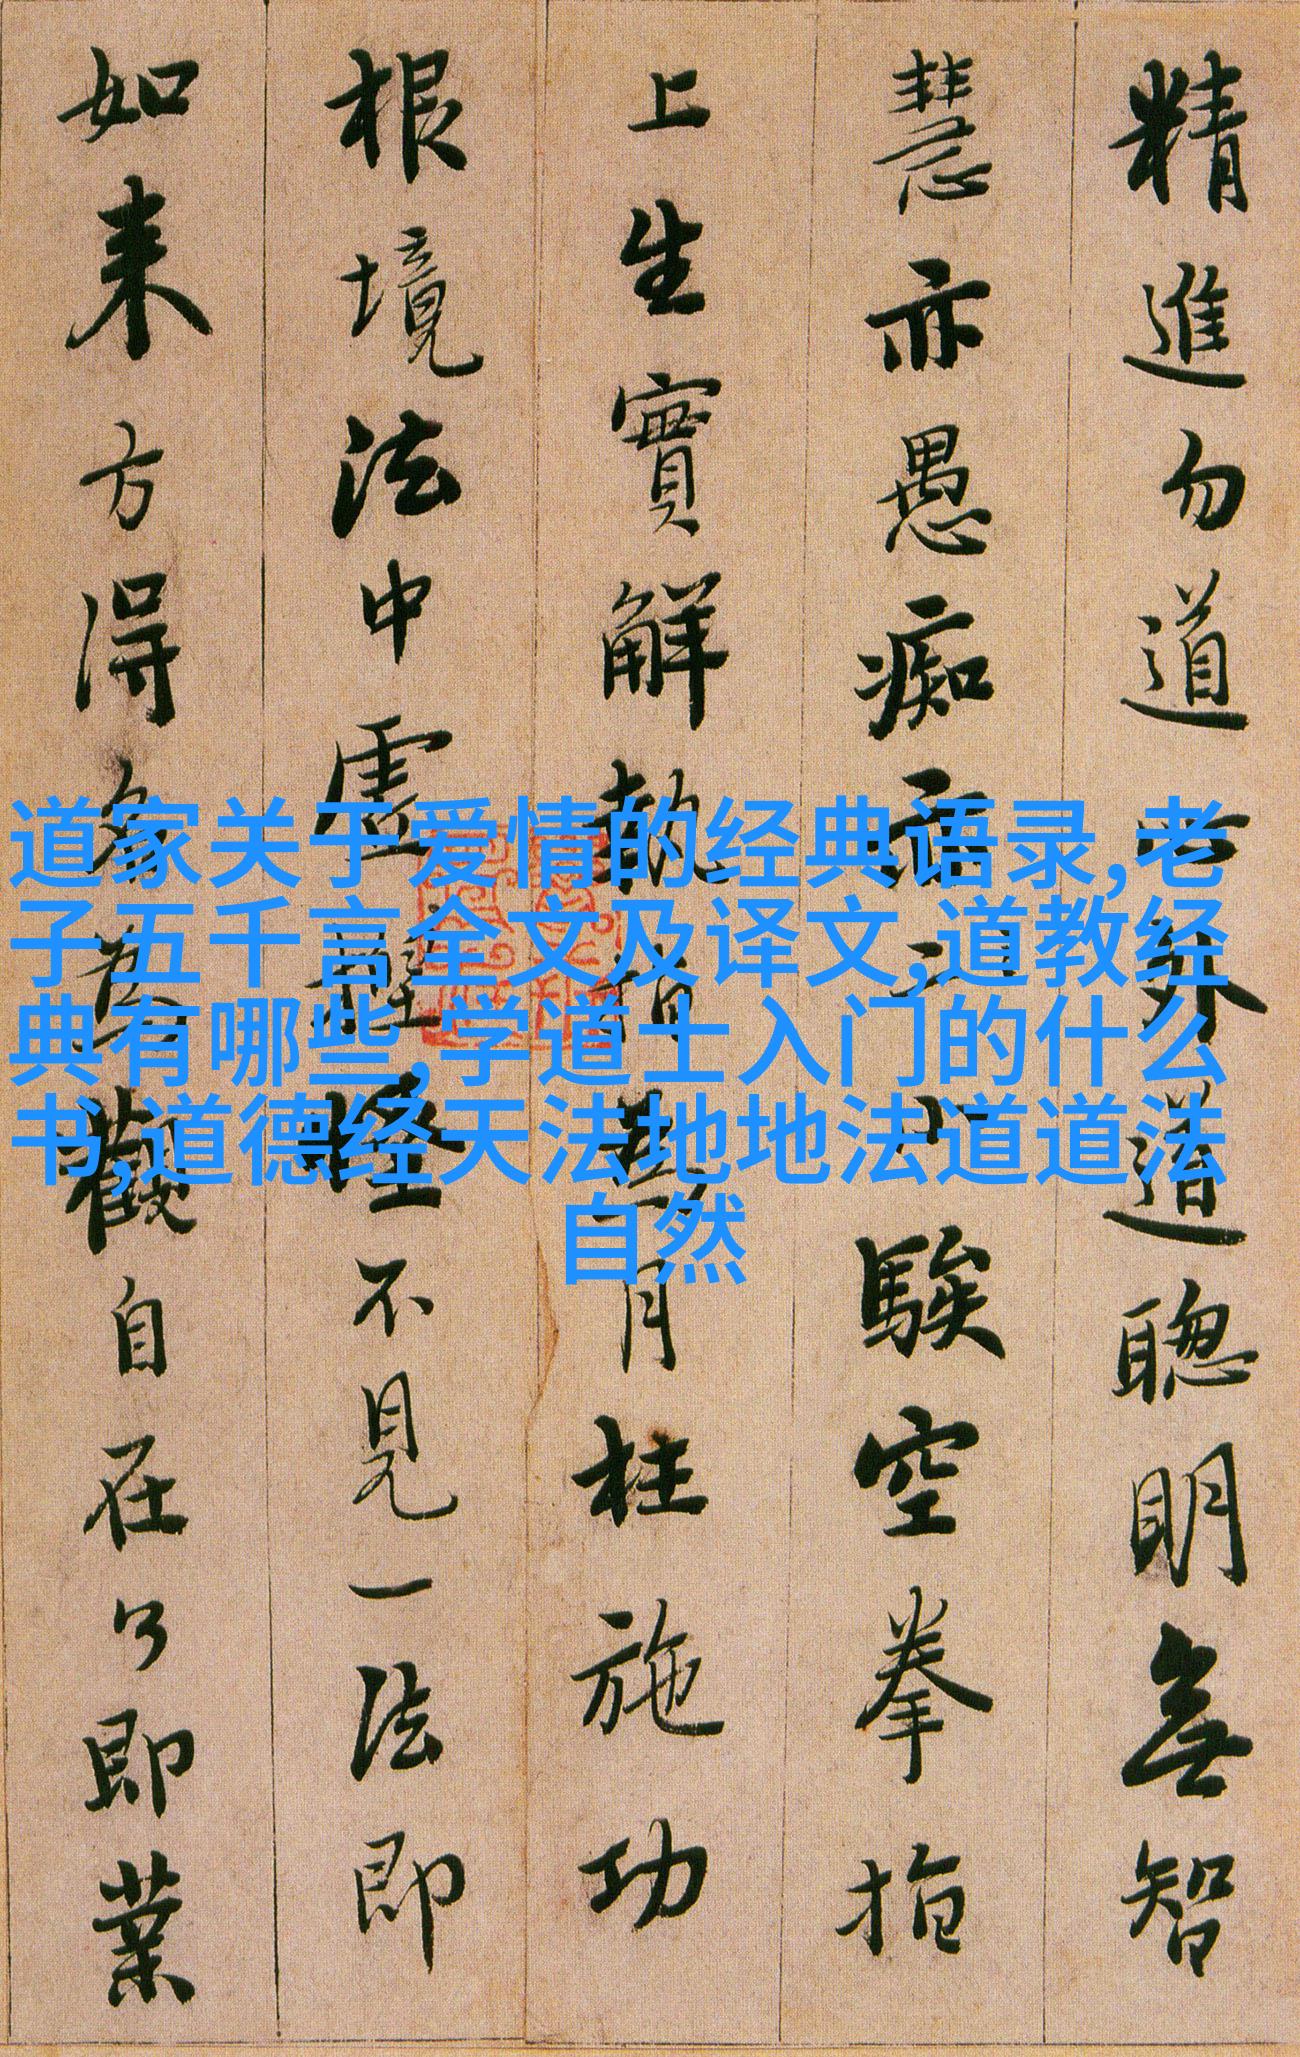 精進勿道心外道聰明無智
慧亦愚痴亦小騃空拳指
上生實解執指為月枉施功
根境法中虛捏怪不見一法即
如来方得名為觀自在了即業
道家关于爱情的经典语录,老
子五千言全文及译文,道教经
典有哪些,学道士入门的什么
书,道德经天法地地法道道法
自然